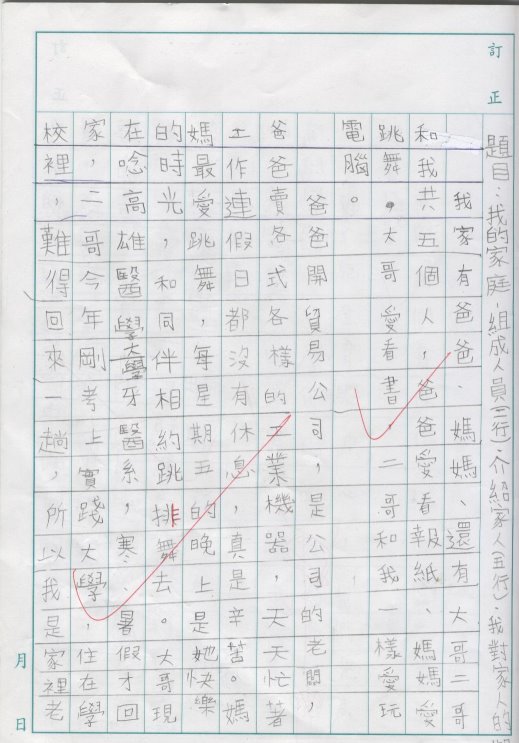 訂正
題目:我的家庭.組成人員(二行).介紹家人(五行).我對家人的
我家有爸爸、媽媽、還有大哥二哥
和我共五個人,爸爸愛看報紙、媽媽愛
跳舞,大哥愛看書,二哥和我一樣愛玩
電腦。
爸爸開貿易公司,是公司的老闆,
爸爸賣各式各樣的工業機器,天天忙著
工作連假日都沒有休息,真是辛苦。媽
媽最愛跳舞,每星期五的晚上是她快樂
的時光,和同伴相約跳排舞去。大哥現
在唸高雄醫學大學牙醫系,寒、暑假才回
家,二哥今年剛考上實踐大學,住在學
校裡,難得回來一趟,所以我是家裡老
月日